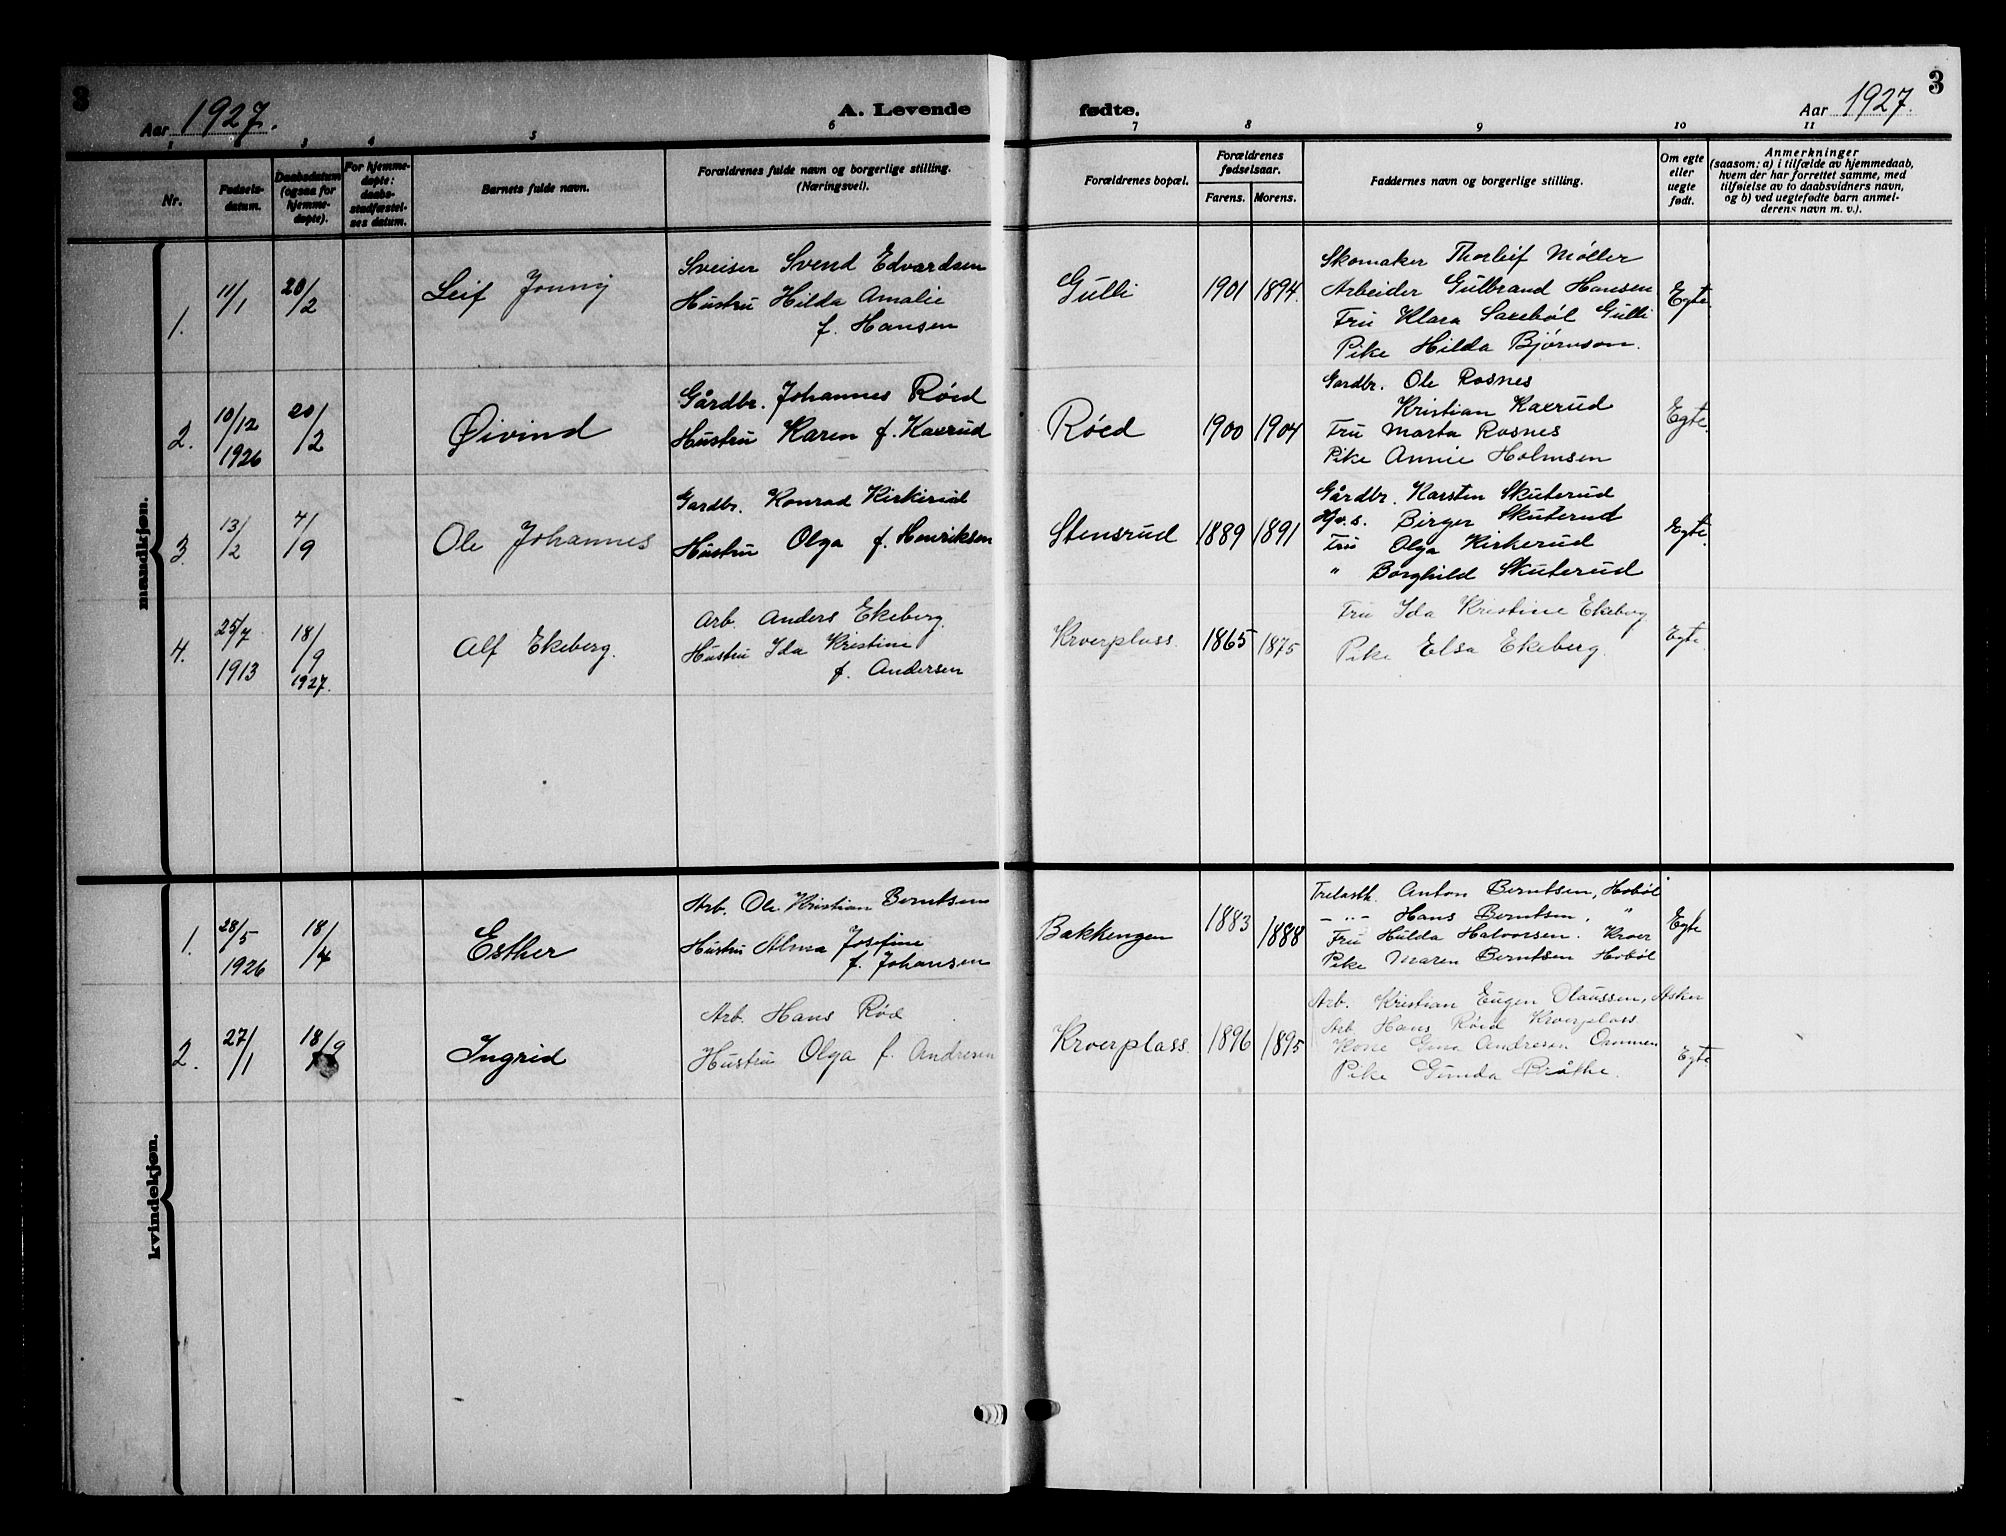 3
Aar 1927.
A. Levende
fødte.
Aar 1927.
3
1 2 3 4 5 6 7 8 9 10 11
Nr.
Fødsels-
datum.
Daabsdatum
(ogsaa for
hjemme-
døpte).
For hjemme-
døpte:
daabs-
stadfæstel-
ses datum.
Barnets fulde navn.
Forældrenes fulde navn og borgerlige stilling.
(Næringsvei).
Forældrenes bopæl.
Forældrenes
fødselsaar.
Farens. Morens.
Faddernes navn og borgerlige stilling.
Om egte
eller
uegte
født.
Anmerkninger
(saasom: a) i tilfælde av hjemmedaab,
hvem der har forrettet samme, med
tilføielse av to daabsvidners navn,
og b) ved uegtefødte barn anmel-
derens navn m. v.).
mandkjøn.
1.
11/1
20/2
Leif Jonny
Sveiser Svend Edvardsen
Hustru Hilda Amalie
f. Hansen
Gulli
1901 1894.
Skomaker Thorleif Møller
Arbeider Gulbrand Hansen
Fru Klara Saxebøl Gulli
Pike Hilda Bjørnson.
Egte.
2.
10/12
1926
20/2
Øivind
Gårdbr. Johannes Røed
Hustru Karen f. Kaxrud
Røed
1900 1904
Gardbr. Ole Rosnes
Kristian Kaxrud
Fru Marta Rosnes
Pike Annie Holmsen
Egte.
3.
13/2
4/9
Ole Johannes
Gardbr. Konrad Kirkerud
Hustru Olga f. Henriksen
Stensrud
1889 1891
Gårdbr. Karsten Skuterud
Gv. s. Birger Skuterud
Fru Olga Kirkerud
" Borghild Skuterud
Egte.
4.
25/7
1913
18/9
1927.
Alf Ekeberg.
Arb. Anders Ekeberg.
Hustru Ida Kristine
f. Andersen
Kroerplass
1865 1875
Fru Ida Kristine Ekeberg
Pike Elsa Ekeberg.
Egte.
kvindekjøn.
1.
28/5
1926
18/4
Esther
Arb. Ole Kristian Berntsen
Hustru Alma Josefine
f. Johansen
Bakkengen
1883 1888
Trelasth. Anton Berntsen, Hobøl
- " - Hans Berntsen. "
Fru Hulda Halvorsen. Kroer
Pike Maren Berntsen Hobøl
Egte
2.
27/1
18/9
Ingrid
Arb Hans Røed
Hustru Olga f. Andresen
Kroerplass.
1896 1895
Arb. Kristian Eugen Olaussen, Asker
Arb Hans Røed Kroerplass
Kone Gina Andresen
Pike Gunda Bråthe.
Egte.